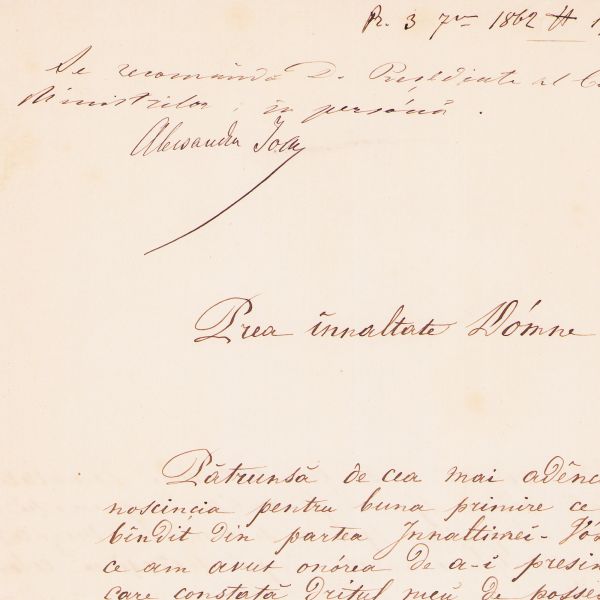 Pr. 3 7vr 1862
Se recomandă D. Preşedinte al
Ministrilor, in persónă.
Alecsandru Ioan
Prea înnaltate Dómne
Pătrunsă de cea mai adênc
noscinçia pentru buna primire ce
bîndit din partea Innaltimei-Vós
ce am avut onórea de a-i presin
care constată dritul meŭ de posse